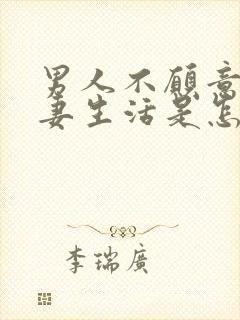 男人不愿意
妻生活是怎
李瑞廣